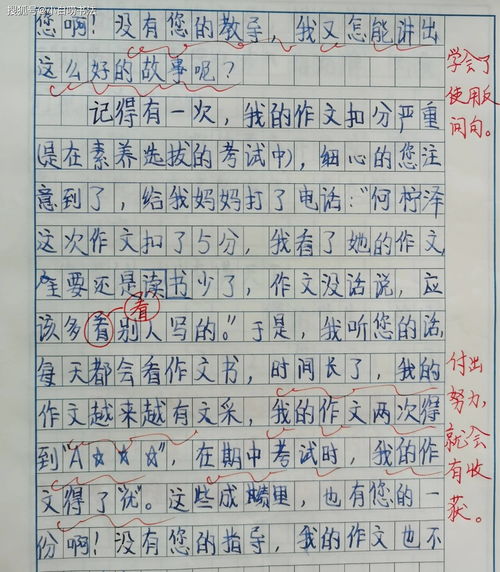 搜狐号@小白鸥书法
您啊！没有您的教导，我又怎能讲出
这么好的故事呢？
学会了
使用反
问句。
记得有一次，我的作文扣分严重
（是在素养选拔的考试中），细心的您注
意到了，给我妈妈打了电话：“何柠泽
这次作文扣了5分，我看了她的作文，
主要还是读书少了，作文没话说，应
该多看别人写的。”于是，我听您的话，
看
每天都会看作文书，时间长了，我的
作文越来越有文采，我的作文两次得
到“A☆☆☆”，在期中考试时，我的作
文得了“优”。这些成绩里，也有您的一
份啊！没有您的指导，我的作文也不
付出
努力，
就会
有收
获。